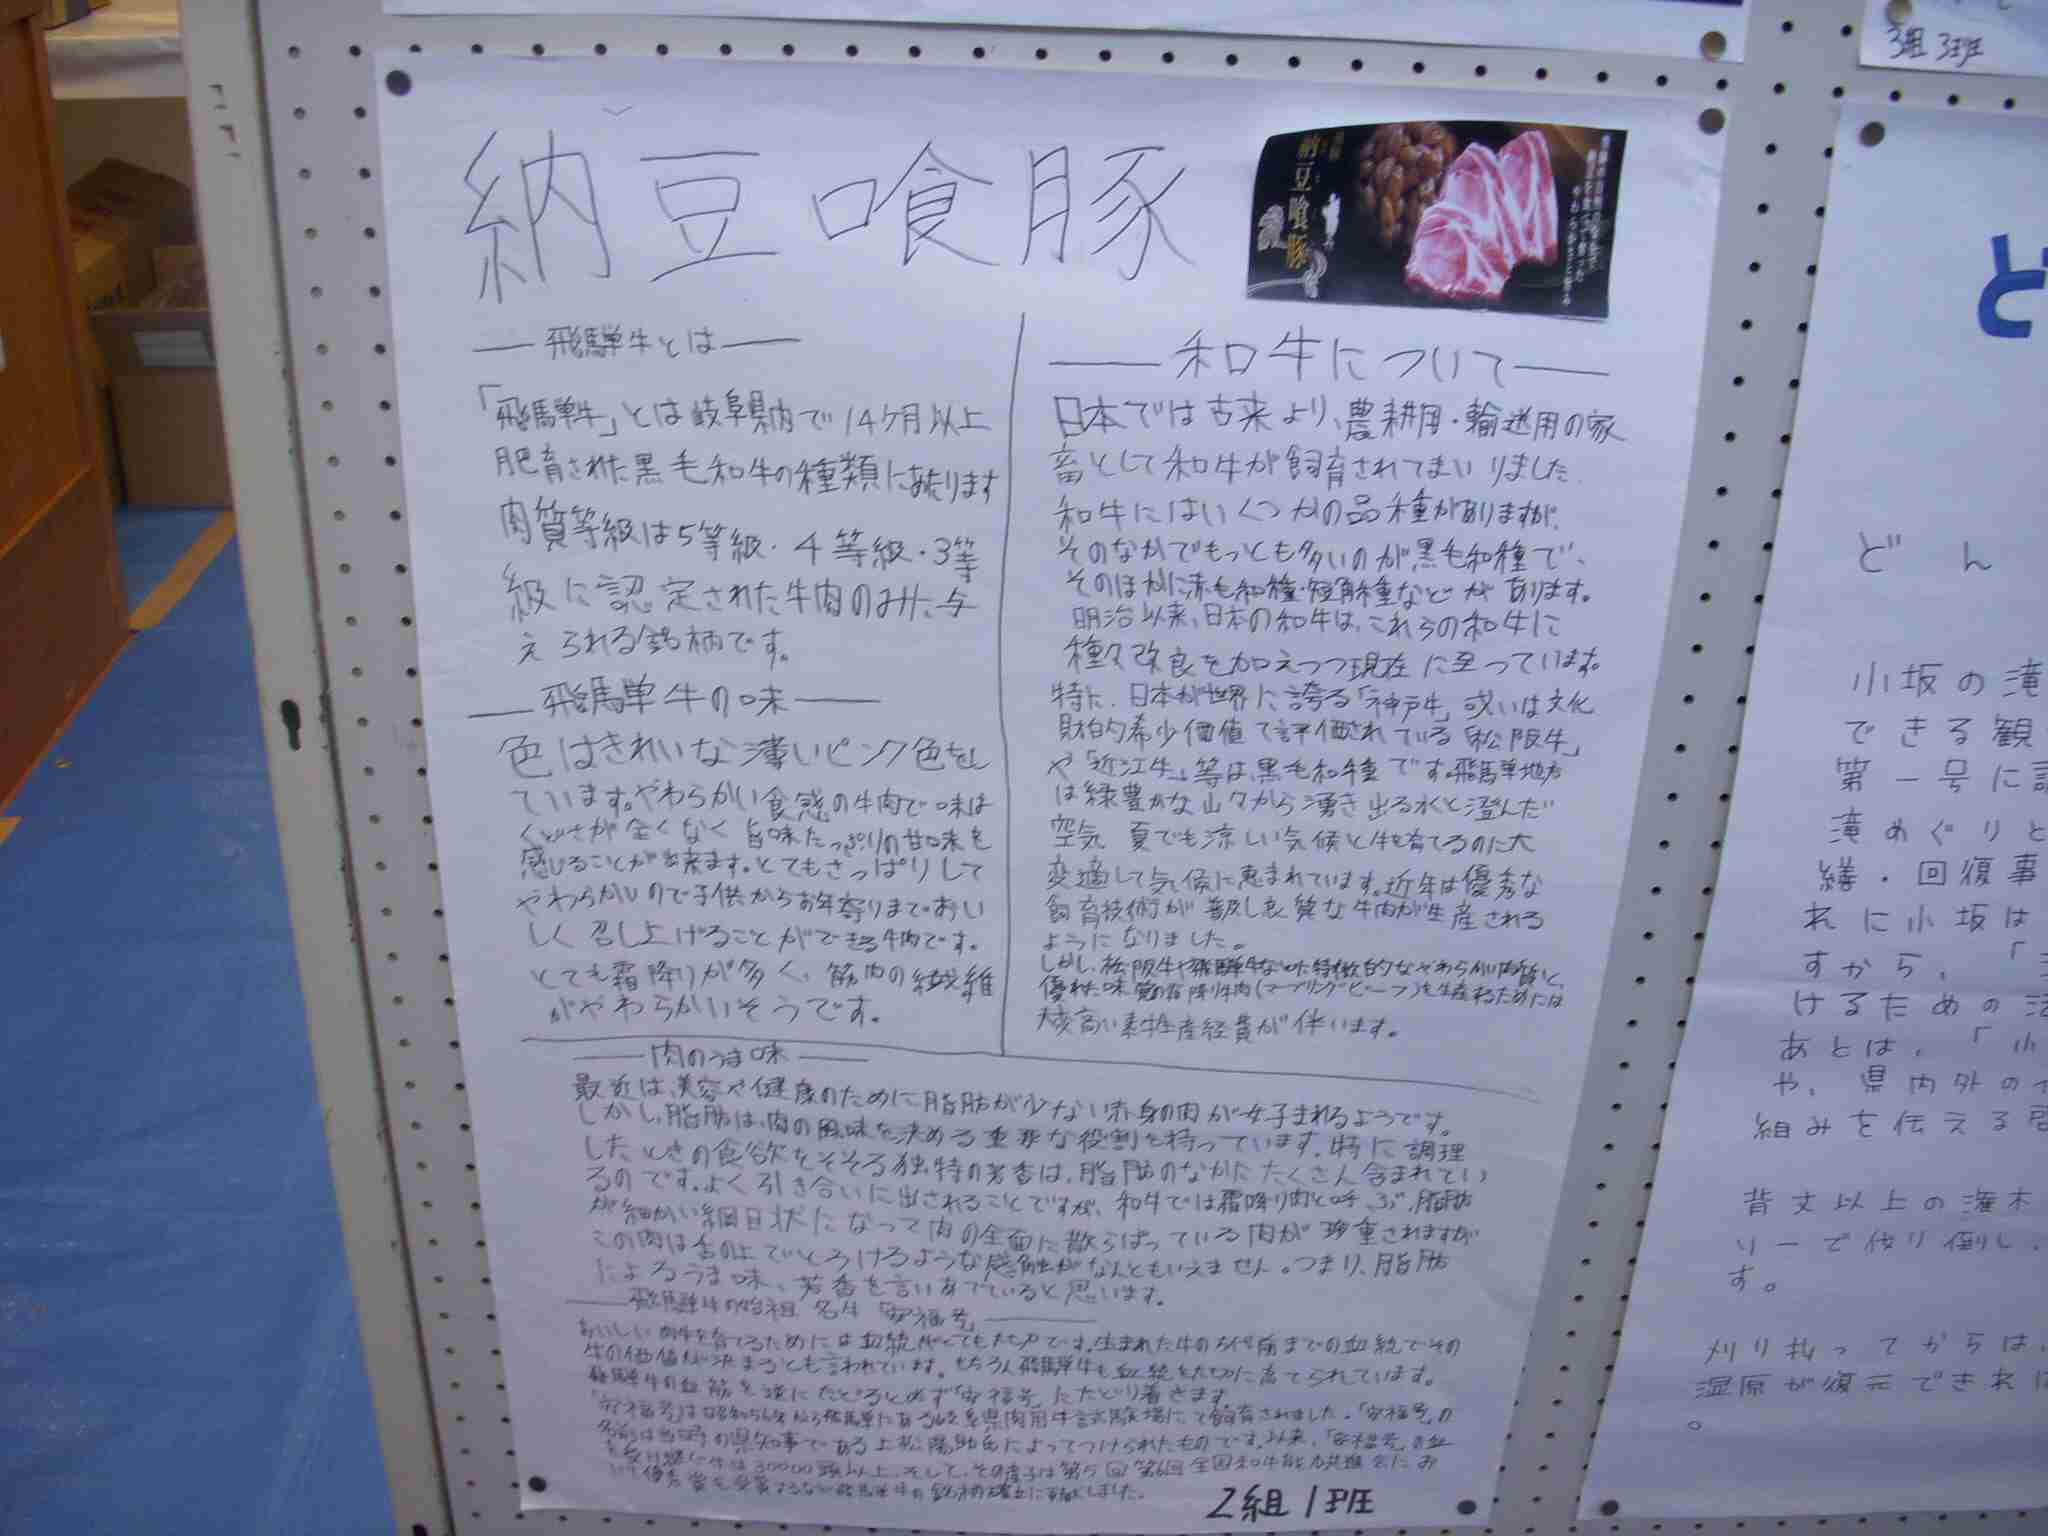 納豆喰豚
納豆喰豚
飛騨牛とは
「飛騨牛」とは岐阜県内で14ヶ月以上
肥育された黒毛和牛の種類に
肉質等級は5等級・4等級・3等
級に認定された牛肉のみに与
えられる銘柄です。
飛騨牛の味
色はきれいな薄いピンク色をし
ています。やわらかい食感の牛肉で味は
くどさが全くなく旨味たっぷりの甘味を
感じることが出来ます。とてもさっぱりして
やわらかいので子供からお年寄りまでおい
しく召し上げることができる牛肉です。
とても霜降りが多く、筋肉の繊維
がやわらかいそうです。
和牛について
日本では古来より、農耕用・輸送用の家
畜として和牛が飼育されてまいりました。
和牛にはいくつかの品種がありますが、
そのなかでもっとも多いのが黒毛和種で、
そのほかに赤毛和種・短角種などがあります。
明治以来、日本の和牛は、これらの和牛に
種々改良を加えつつ現在に至っています。
特に、日本が世界に誇る「神戸牛」或いは文化
財的希少価値で評価されている「松阪牛」
や「近江牛」等は、黒毛和種です。飛騨地方
は緑豊かな山々から湧き出る水と澄んだ
空気 夏でも涼しい気候と牛を育てるのに大
変適して気候に恵まれています。近年は優秀な
飼育技術が普及し良質な牛肉が生産される
ようになりました。
しかし、松阪牛や飛騨牛などの特徴的なやわらかい肉質と、
優れた味覚の霜降り牛肉(マーブリングビーフ)を生産するためには
大変高い素牛生産経費が伴います。
肉のうま味
最近は、美容や健康のために脂肪が少ない赤身の肉が好まれるようです。
しかし、脂肪は、肉の風味を決める重要な役割を持っています。特に調理
したときの食欲をそそる独特の芳香は、脂肪のなかにたくさん含まれてい
るのです。よく引き合いに出されることですが、和牛では霜降り肉と呼ぶ、脂肪
が細かい網目状になって肉の全面に散らばっている肉が珍重されますが
この肉は舌の上でとろけるような感触がなんともいえません。つまり、脂肪
によるうま味、芳香を言いあてていると思います。
飛騨牛の始祖 名牛「安福号」
おいしい肉牛を育てるためには血統がとても大切です。生まれた牛の5代前までの血統でその
牛の価値が決まるとも言われています。もちろん飛騨牛も血統を大切に育てられています。
飛騨牛の血筋を逆にたどると必ず「安福号」にたどり着きます。
「安福号」は昭和56年から飛騨にある岐阜県肉用牛試験場にて飼育されました。「安福号」の
名前は当時の県知事である上松陽助氏によってつけられたものです。以来、「安福号」の血
を受け継ぐ牛は30000頭以上、そして、その産子は第5回第6回全国和牛能力共進会にお
いて優秀賞を受賞するなど飛騨牛の銘柄確立に貢献しました。
2組1班
3組3班
ど
どん
小坂の滝
できる観
第一号に
滝めぐりと
繕・回復事
れに小坂は
すから、「
けるための活
あとは、「小
や、県内外の
組みを伝える
背丈以上の灌木
リーで伐り倒し、
す。
刈り払ってからは、
湿原が復元できれば
。